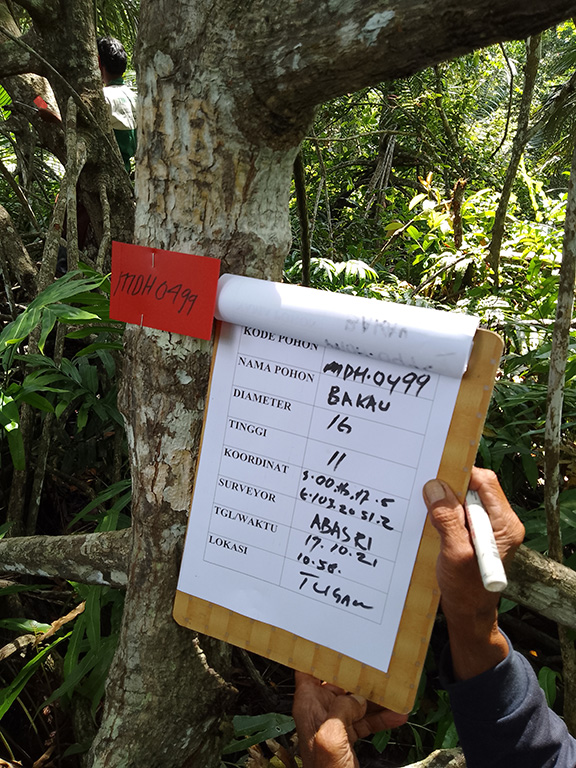 MDH0499
KODE POHON MDH.0499
NAMA POHON BAKAU
DIAMETER 16
TINGGI 11
KOORDINAT
SURVEYOR ABASRI
TGL/WAKTU 17.10.21
10.58.
LOKASI TUGAU